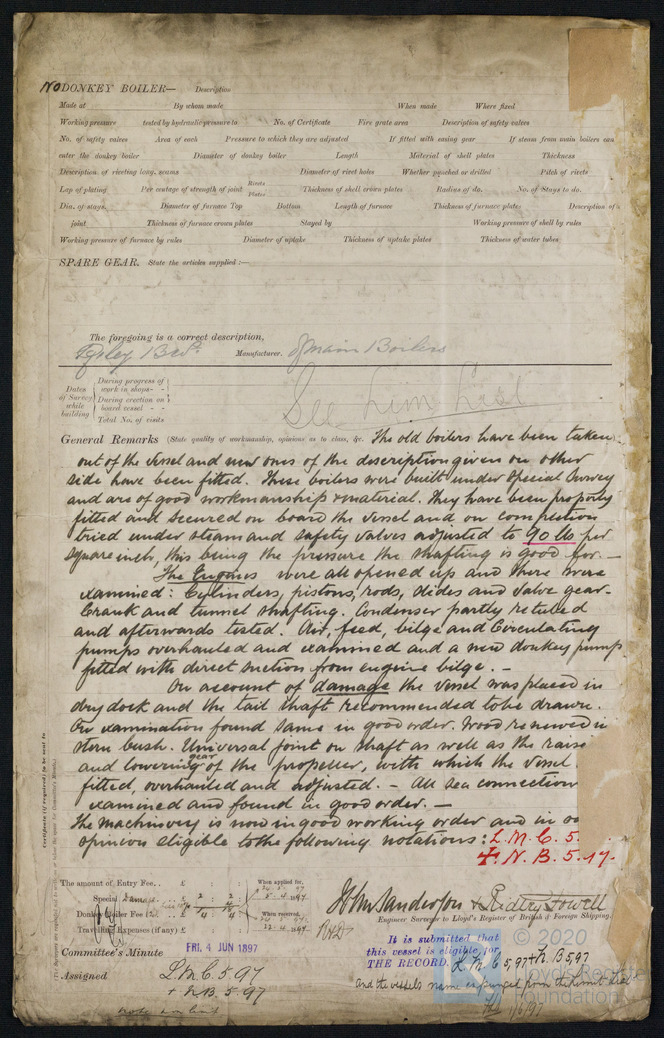 No DONKEY BOILER— Description
Made at By whom made When made Where fixed
Working pressure tested by hydraulic pressure to No. of Certificate Fire grate area Description of safety valves
No. of safety valves Area of each Pressure to which they are adjusted If fitted with easing gear If steam from main boilers can
enter the donkey boiler Diameter of donkey boiler Length Material of shell plates Thickness
Description of riveting long. seams Diameter of rivet holes Whether punched or drilled Pitch of rivets
Lap of plating Per centage of strength of joint Rivets Plates Thickness of shell crown plates Radius of do. No. of Stays to do.
Dia. of stays. Diameter of furnace Top Bottom Length of furnace Thickness of furnace plates Description of
joint Thickness of furnace crown plates Stayed by Working pressure of shell by rules
Working pressure of furnace by rules Diameter of uptake Thickness of uptake plates Thickness of water tubes
SPARE GEAR. State the articles supplied:—
The foregoing is a correct description,
Manufacturer. of main Boilers
Dates of Survey while building
During progress of work in shops - -
During erection on board vessel - -
Total No. of visits
See
General Remarks (State quality of workmanship, opinions as to class, &c. The old boilers have been taken
out of the vessel and new ones of the description given on other
side have been fitted. These boilers were built under Special Survey
and are of good workmanship & material. They have been properly
fitted and secured on board the vessel and on completion
tried under steam and safety valves adjusted to 90 lbs per
square inch, this being the pressure the shafting is good for. —
The Engines were all opened up and there were
examined: Cylinders, pistons, rods, slides and valve gear.
Crank and tunnel shafting. Condenser partly retubed
and afterwards tested. Air, feed, bilge and Circulating
pumps overhauled and examined and a new donkey pump
fitted with direct suction from engine bilge. —
On account of damage the vessel was placed in
dry dock and the tail shaft recommended to be drawn.
On examination found same in good order. Wood renewed in
stern bush. Universal joint on shaft as well as the raise
and lowering gear of the propeller, with which the vessel
fitted, overhauled and adjusted. — All sea connection
examined and found in good order. —
The machinery is now in good working order and in our
opinion eligible to the following notations: L.M.C. 5.
+ N.B. 5.97.
Certificate (if required) to be sent to
The amount of Entry Fee.. £ : : When applied for,
Special £ 2 : 2
Donkey Boiler Fee £ When received,
Travelling Expenses (if any) £ : :
John Sanderson & Ridley Howell
Engineer Surveyor to Lloyd's Register of British & Foreign Shipping.
Committee's Minute FRI. 4 JUN 1897
Assigned L.M.C. 5.97
+ N.B. 5.97
It is submitted that
this vessel is eligible for
THE RECORD. L.M.C 5,97 + N.B 5,97
and the vessel's name expunged from the list
1/6/97
© 2020
Lloyd's Register
Foundation